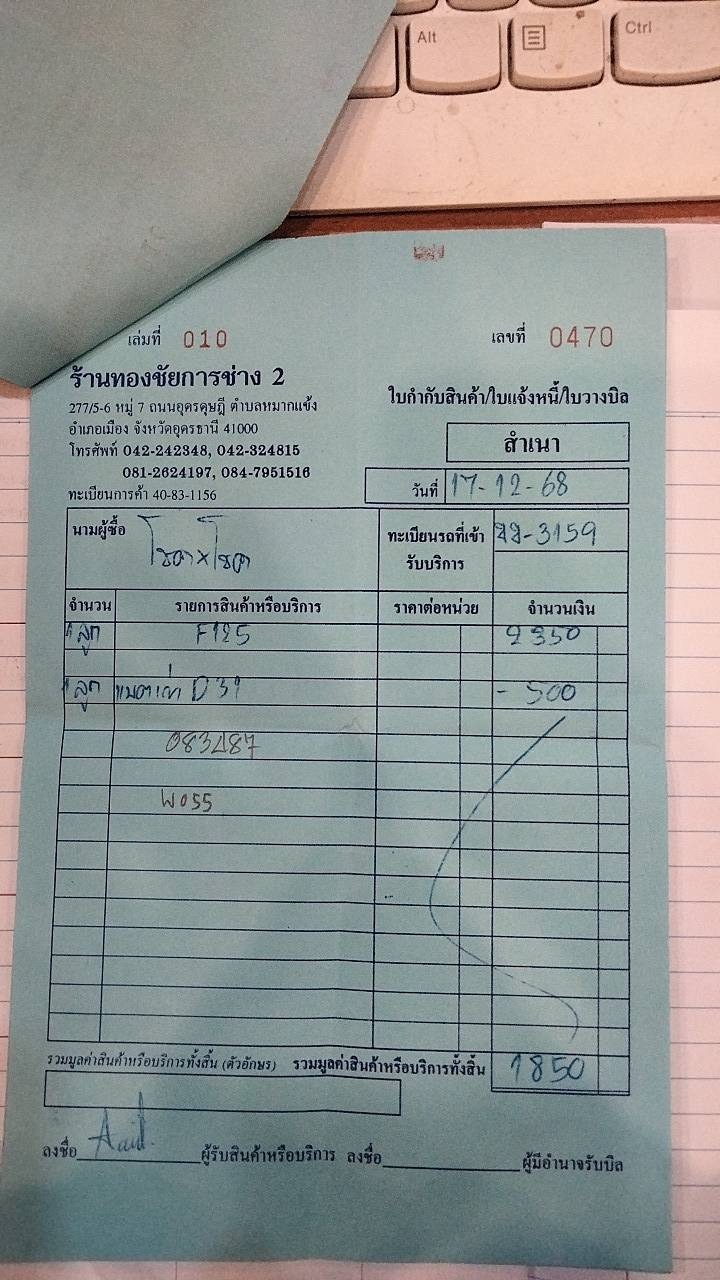 Alt
Ctrl
เล่มที่ 010
เลขที่ 0470
ร้านทองชัยการช่าง 2
277/5-6 หมู่ 7 ถนนอุดรดุษฎี ตำบลหมากแข้ง
อำเภอเมือง จังหวัดอุดรธานี 41000
โทรศัพท์ 042-242348, 042-324815
081-2624197, 084-7951516
ทะเบียนการค้า 40-83-1156
ใบกำกับสินค้า/ใบแจ้งหนี้/ใบวางบิล
สำเนา
วันที่ 17-12-68
นามผู้ซื้อ โชคxโชค
ทะเบียนรถที่เข้ารับบริการ -3159
จำนวน รายการสินค้าหรือบริการ ราคาต่อหน่วย จำนวนเงิน
1 ลูก F125 2350
1 ลูก แบตเก่า D31 - 500
083487
W055
รวมมูลค่าสินค้าหรือบริการทั้งสิ้น (ตัวอักษร) รวมมูลค่าสินค้าหรือบริการทั้งสิ้น 1850
ลงชื่อ ผู้รับสินค้าหรือบริการ ลงชื่อ ผู้มีอำนาจรับบิล